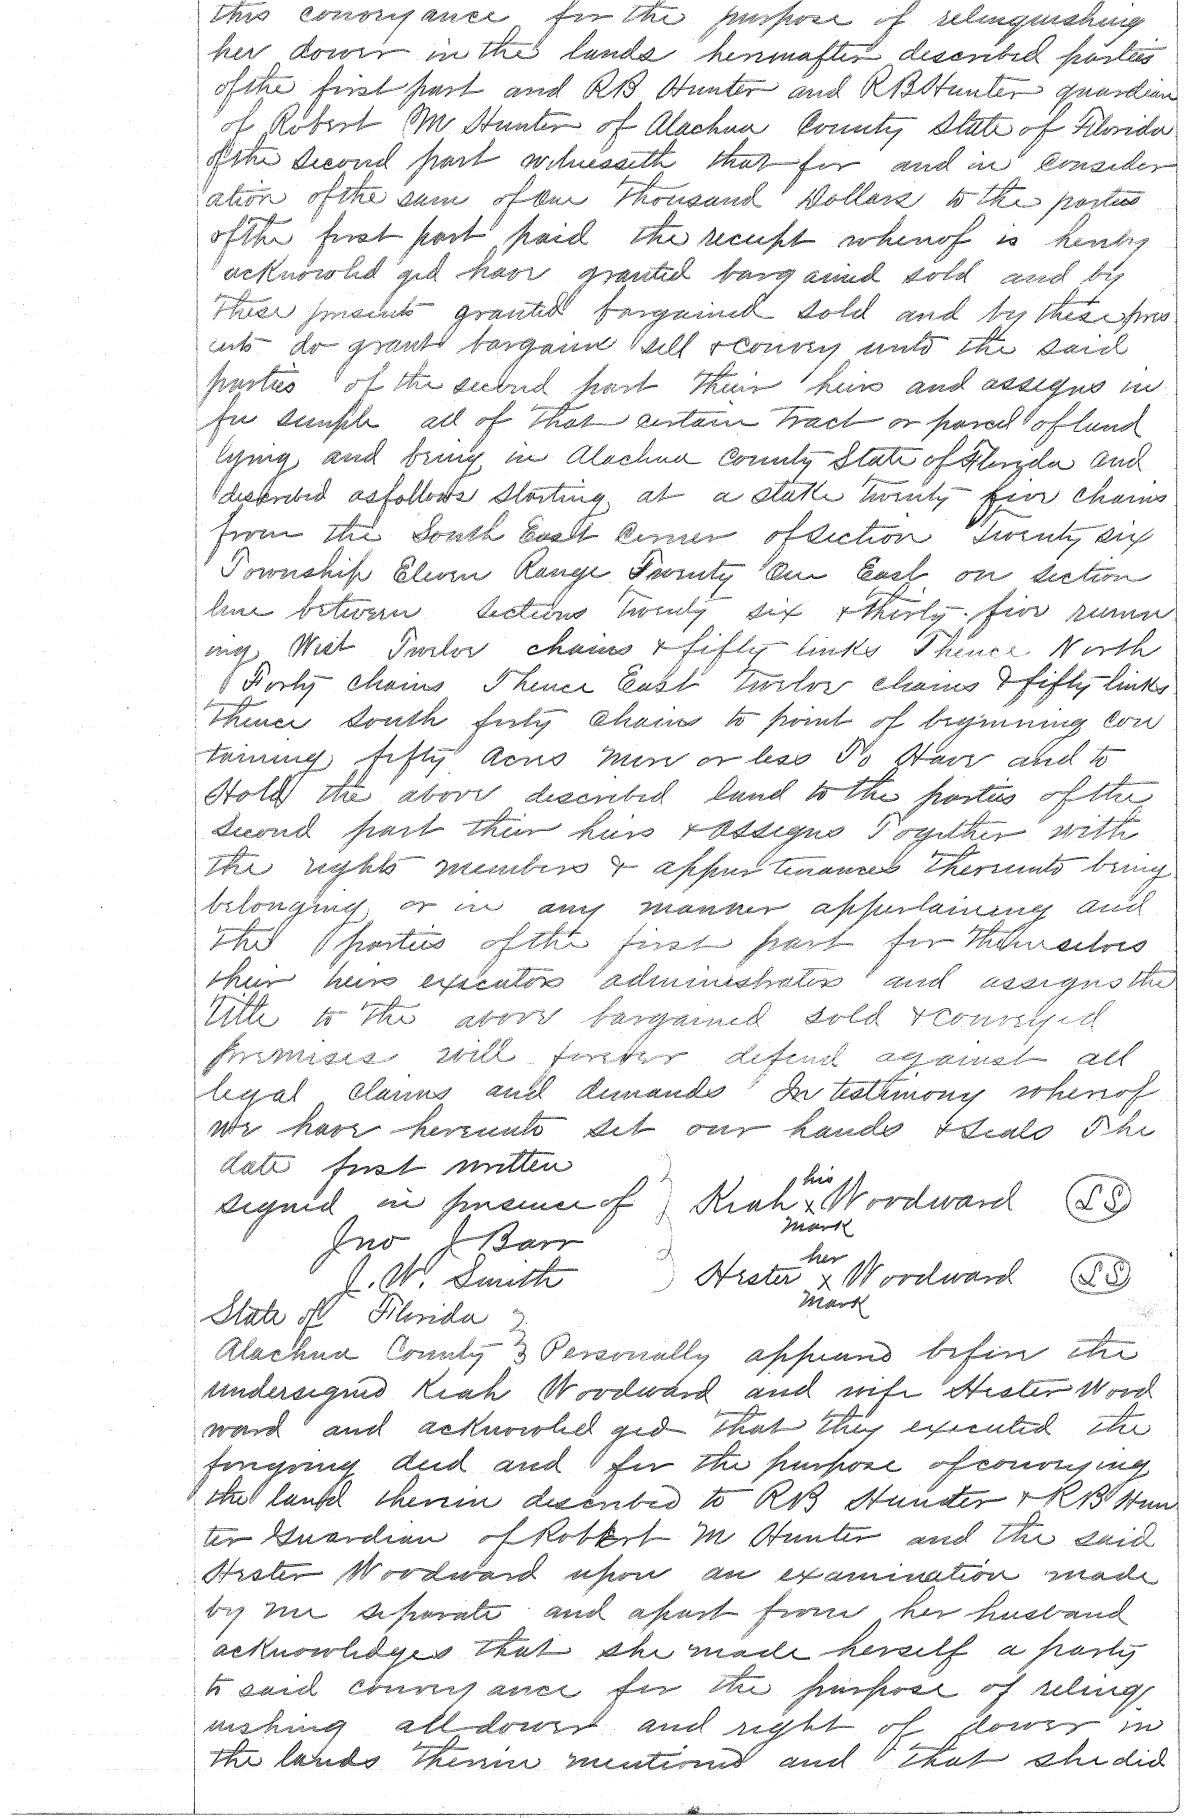 this conveyance for the purpose of relinquishing
her dower in the lands hereinafter described parties
of the first part and RB Hunter and RB Hunter guardian
of Robert M Hunter of Alachua County State of Florida
of the second part witnesseth that for and in consider
ation of the sum of One Thousand Dollars to the parties
of the first part paid the receipt whereof is hereby
acknowled ged have granted bargained sold and by
These presents granted bargained sold and by these pres
ents do grant bargain sell & convey unto the said
parties of the second part their heirs and assigns in
fee simple all of that certain Tract or parcel of land
lying and being in Alachua County State of Florida and
described as follows Starting at a stake Twenty five chains
from the South East Corner of section Twenty six
Township Eleven Range Twenty One East on section
line between sections Twenty six & thirty five runn
ing West Twelve chains & fifty links Thence North
Forty chains Thence East Twelve chains & fifty links
Thence South forty Chains to point of beginning con
taining fifty acres more or less To Have and to
Hold the above described land to the parties of the
second part their heirs & assigns Together with
the rights members & appurtenances thereunto being
belonging or in any manner appertaining and
The parties of the first part for Themselves
their heirs executors administrators and assigns the
Title to The above bargained sold & conveyed
premises will forever defend against all
legal claims and demands In testimony whereof
we have hereunto set our hands & seals The
date first written
signed in presence of Kiah his x mark Woodward LS
Jno J Barr
J. W. Smith Hester her x mark Woodward LS
State of Florida
Alachua County Personally appeared before the
undersigned Kiah Woodward and wife Hester Wood
ward and acknowled ged That they executed the
foregoing deed and for the purpose of conveying
the land therein described to RB Hunter & RB Hun
ter Guardian of Robert M Hunter and the said
Hester Woodward upon an examination made
by me separate and apart from her husband
acknowledges that she made herself a party
to said conveyance for the purpose of relinq
uishing all dower and right of dower in
the lands therein mentioned and That she did